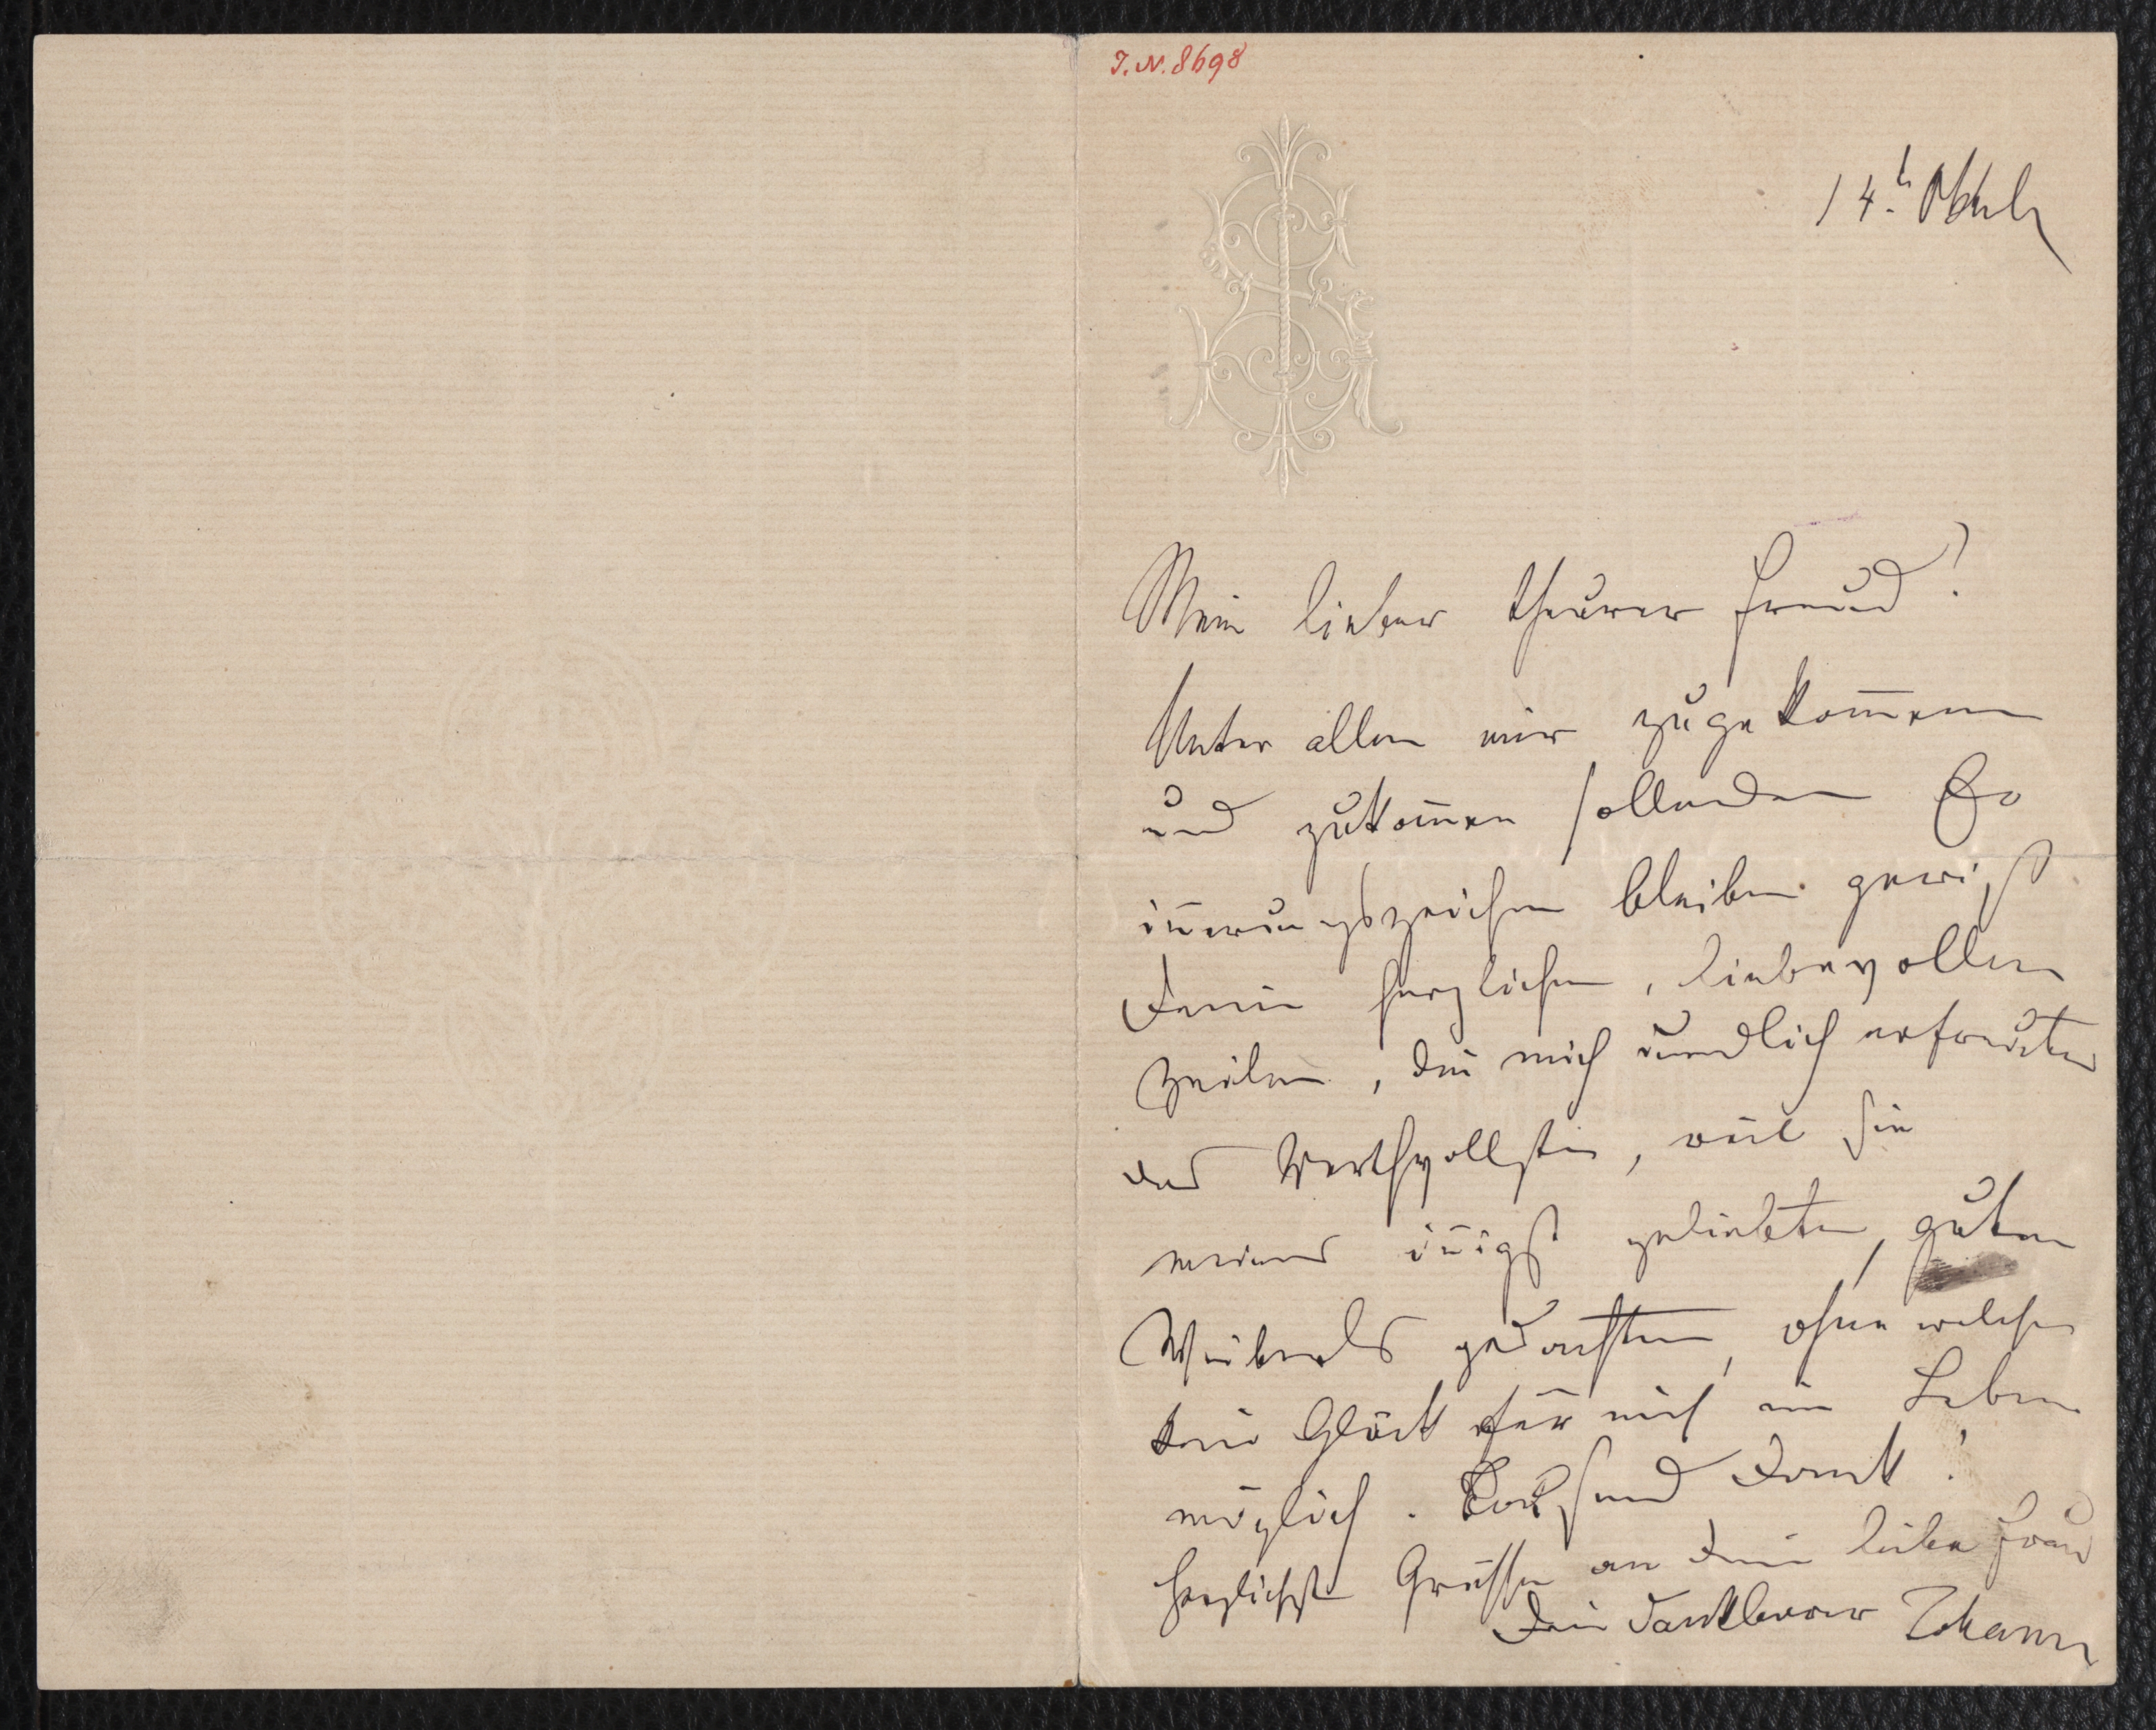 I.N. 8698
14. Oktob
Mein lieber theurer Freund!
Unter allen mir zugekom̅enen
und zukom̅en sollenden Er
in̅erungszeichen bleiben gewiß
Deine herzlichen, liebevollen
Zeilen, die mich unendlich erfreuten
das Werthvollste, weil sie
meines in̅igst geliebten, guten
Weiberls gedachten, ohne welches
kein Glück für mich im Leben
möglich. Tausend Dank!
Herzlichste Grüsse an Deine liebe Frau
Dein dankbarer Johann